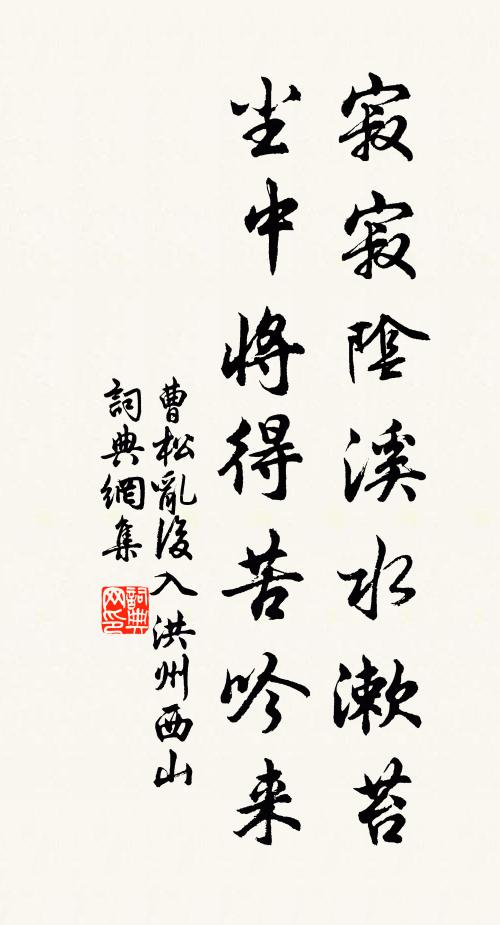 寂寂陰溪水漱苔
尘中將得苦吟来
曹松亂後入洪州西山
詞典網集
詞典网印